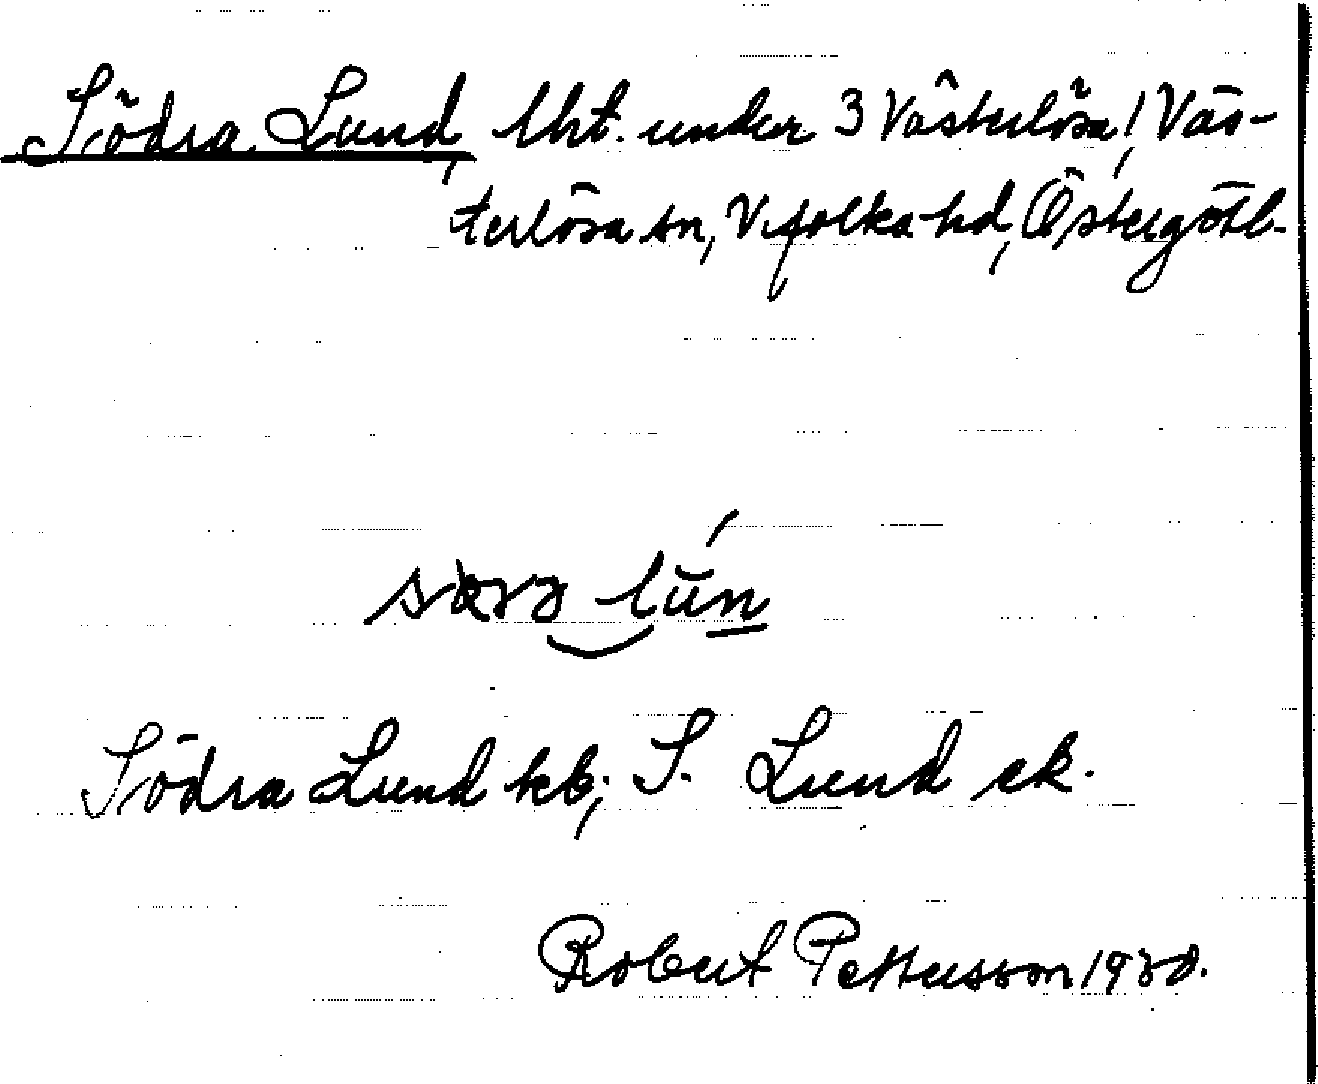 Södra Lund, lht. under 3 Västerlösa, Väs-
terlösa sn, Vifolka hd, Östergötl.
lun
Södra Lund kb; S. Lund ek.
Robert Pettersson 1930.